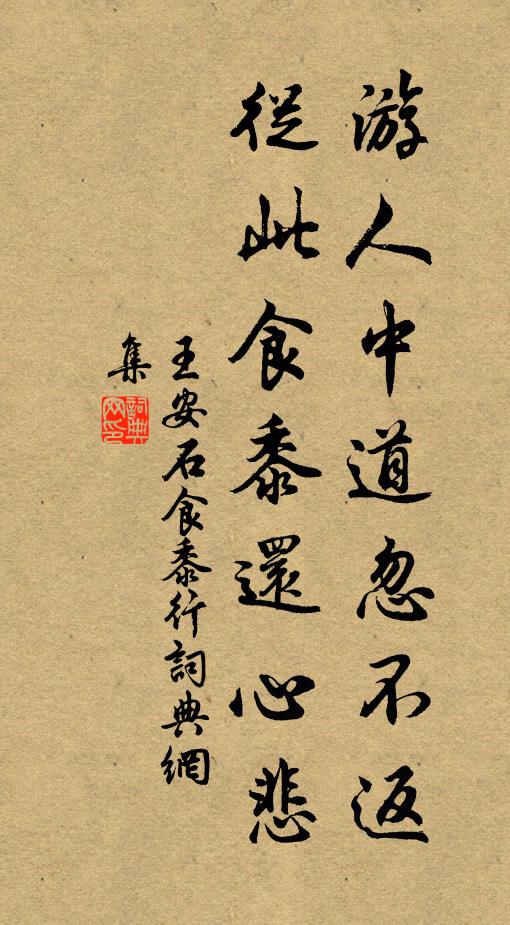 游人中道忽不返
從此食黍還心悲
王安石食黍行詞典網
集
詞典網印